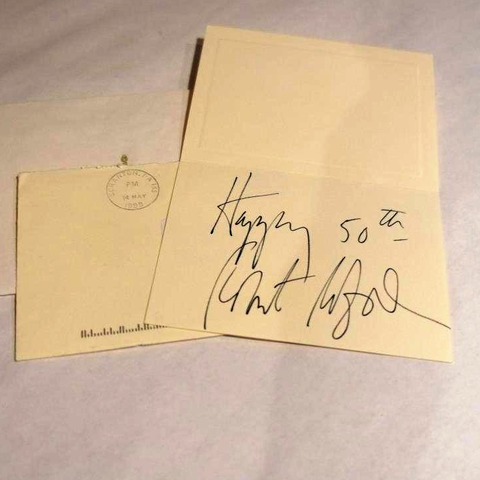 PM
MAY
Happy 50th
Robert Redford